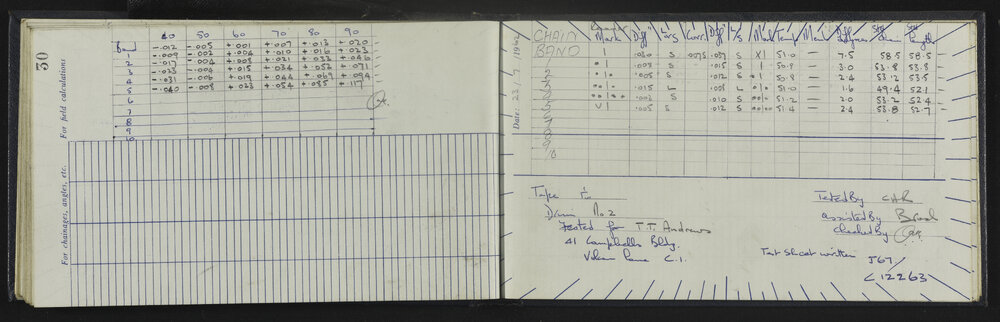 30
For field calculations
For chainages, angles, etc.
40 50 60 70 80 90
Band -.012 -.005 +.001 +.007 +.013 +.020
1 -.009 -.002 +.004 +.010 +.016 +.023
2 -.017 -.004 +.008 +.021 +.033 +.046
3 -.023 -.004 +.015 +.034 +.052 +.071
4 -.031 -.006 +.019 +.044 +.069 +.094
5 -.040 -.008 +.023 +.054 +.085 +.117
6
7
8
9
10
Date: 23/7/1962
CHAIN
BAND
Mark Diff L/S Corrn Diff L/S Mark Temp
.020 S .0075 .007 S X1 51.0 — 7.5 58.5 58.5
1 .008 S .015 S 50.9 — 3.0 53.8 53.5
2 .005 S .012 S 50.8 — 2.4 53.2 53.5
3 .015 L .008 L 51.0 — 1.6 49.4 52.1
4 .002 S .010 S 51.2 — 2.0 53.2 52.4
5 .005 S .012 S 51.4 — 2.4 53.8 52.7
6
7
8
9
10
Tape in
Drum No 2
Tested for T.T. Andrews
41 Campbells Bldg.
Vulcan Lane C.1.
Tested By
Assisted By
Checked By
Test Sheet written J67/
C12263